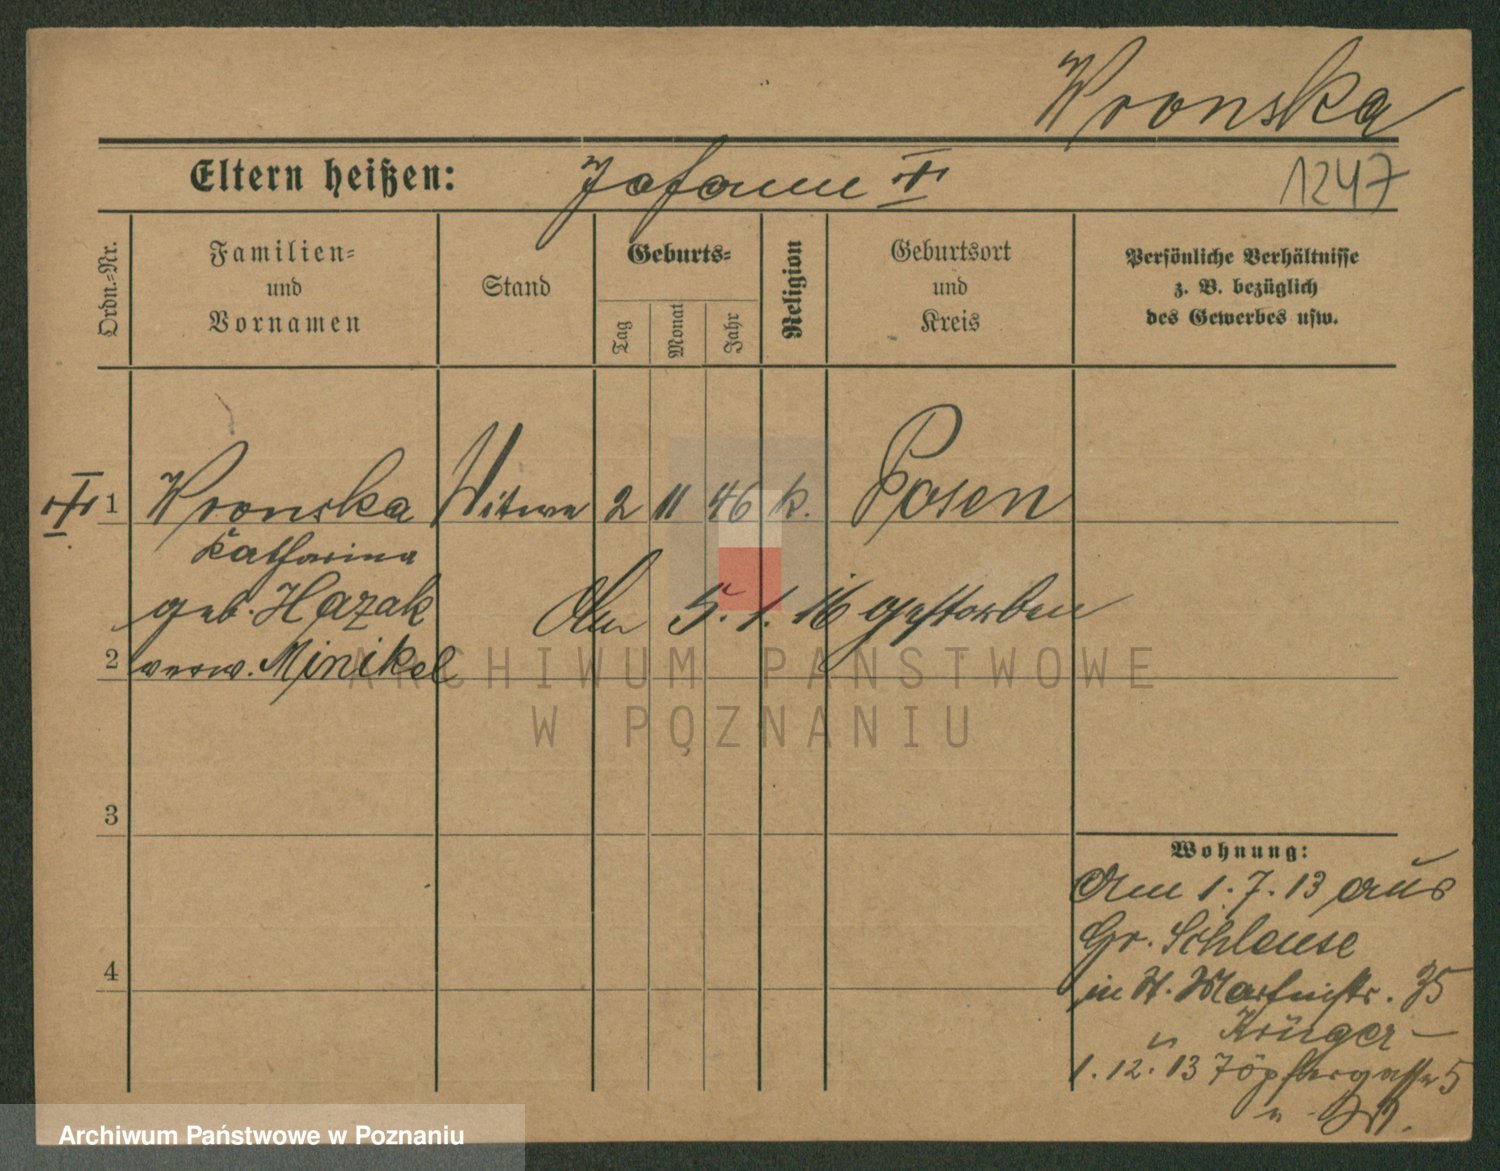 Wronska
Eltern heißen: Johann
1247
Ordn.=Nr.
Familien=
und
Vornamen
Stand
Geburts=
Tag
Monat
Jahr
Religion
Geburtsort
und
Kreis
Persönliche Verhältnisse
z. B. bezüglich
des Gewerbes usw.
1 Wronska Witwe 2 11 46 k. Posen
Katharina
geb. Hazak
Am 5. 1. 16 gestorben
2 verw. Minikel
ARCHIWUM PAŃSTWOWE
W POZNANIU
3
4
Wohnung:
Am 1. 7. 13 aus
Gr. Schleuse
in St. Martinstr. 35
Krüger
1. 12. 13 Töpfergasse 5
Archiwum Państwowe w Poznaniu